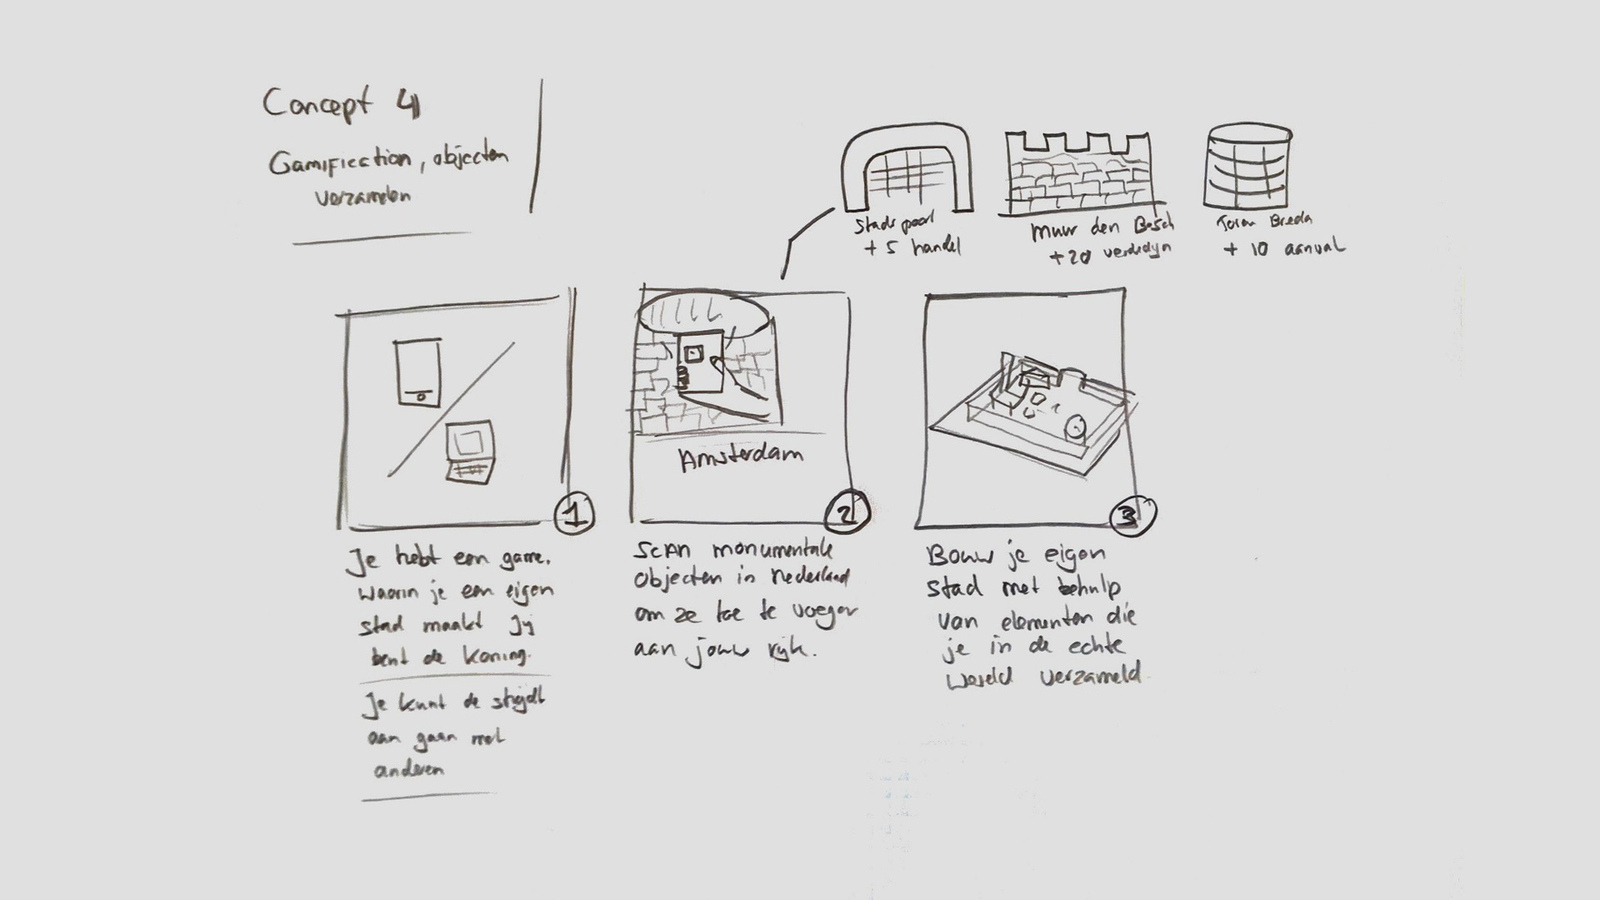 Concept 4
Gamification, objecten
verzamelen
Stadspoort
+ 5 handel
Muur den Bosch
+20 verdedyn
Toren Breda
+ 10 aanval
Amsterdam
1
2
3
Je hebt een game.
waarin je een eigen
stad maakt Jij
bent de koning.
Je kunt de strijdt
aan gaan met
anderen
Scan monumentale
objecten in Nederland
om ze toe te voegen
aan jouw rijk.
Bouw je eigen
stad met behulp
van elementen die
je in de echte
wereld verzameld